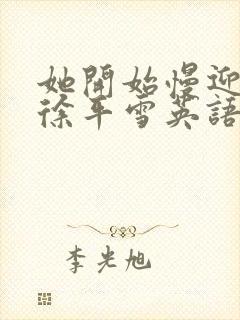 她開始慢迎
徐平雪英語
李光旭